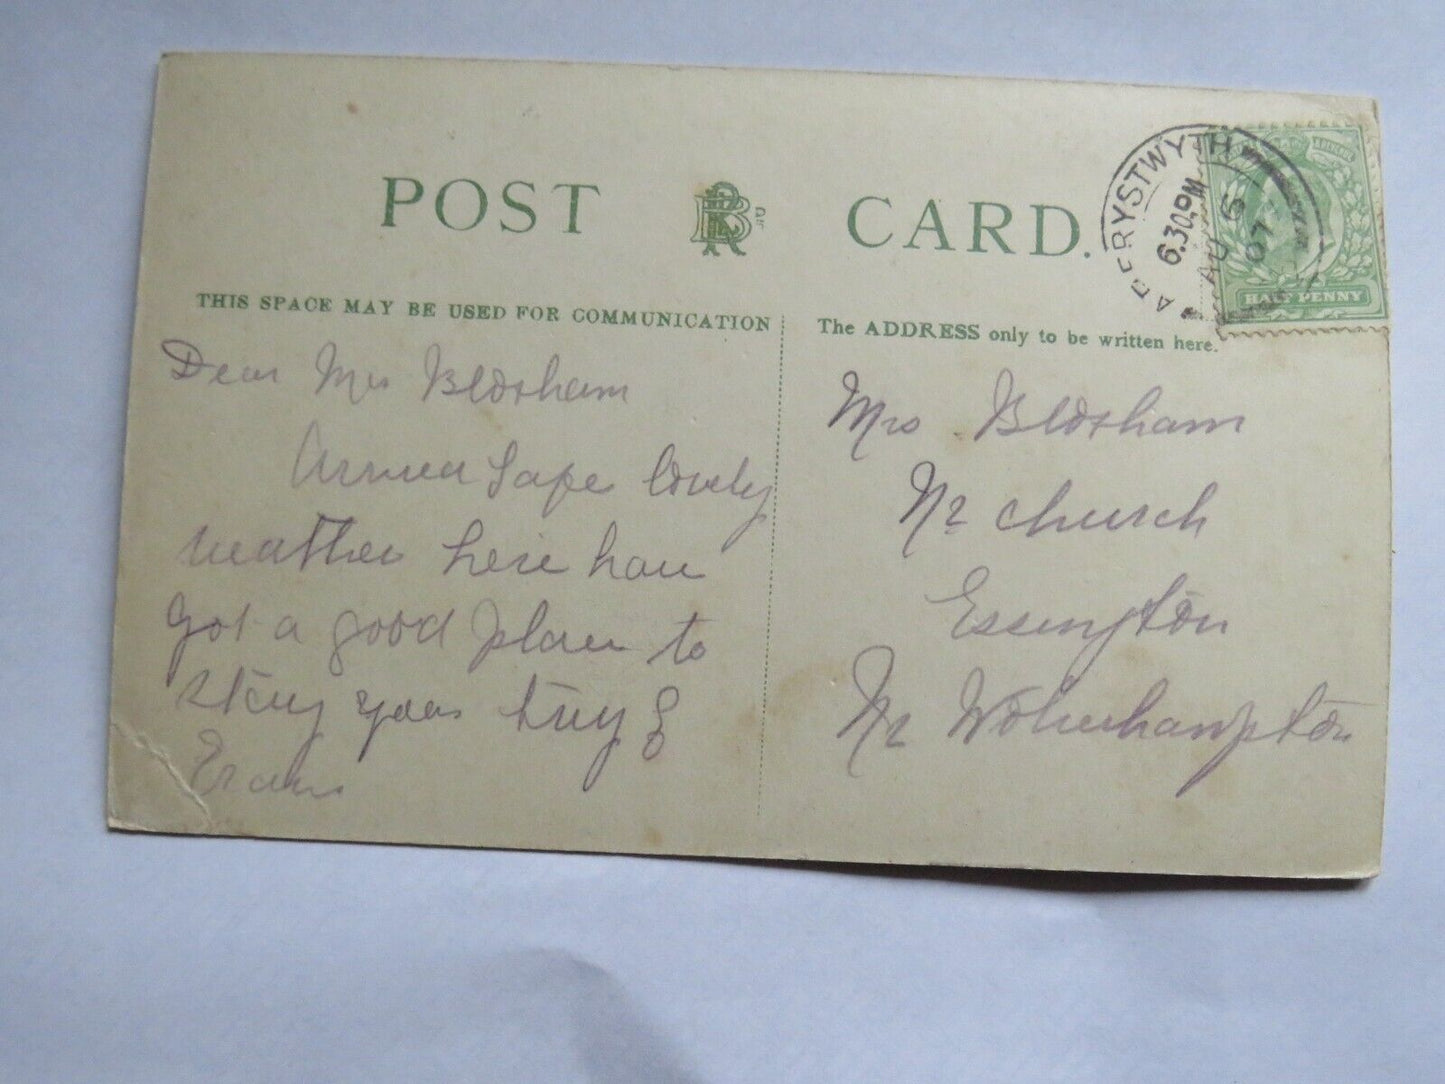 POST CARD.
THIS SPACE MAY BE USED FOR COMMUNICATION
The ADDRESS only to be written here.
ABERYSTWYTH
6.30PM
AU 6
07
HALF PENNY
Dear Mrs Bloxham
Arrived Safe lovely
weather here have
got a good place to
stay yours truly E
Evans
Mrs Bloxham
Nr church
Essington
Nr Wolverhampton